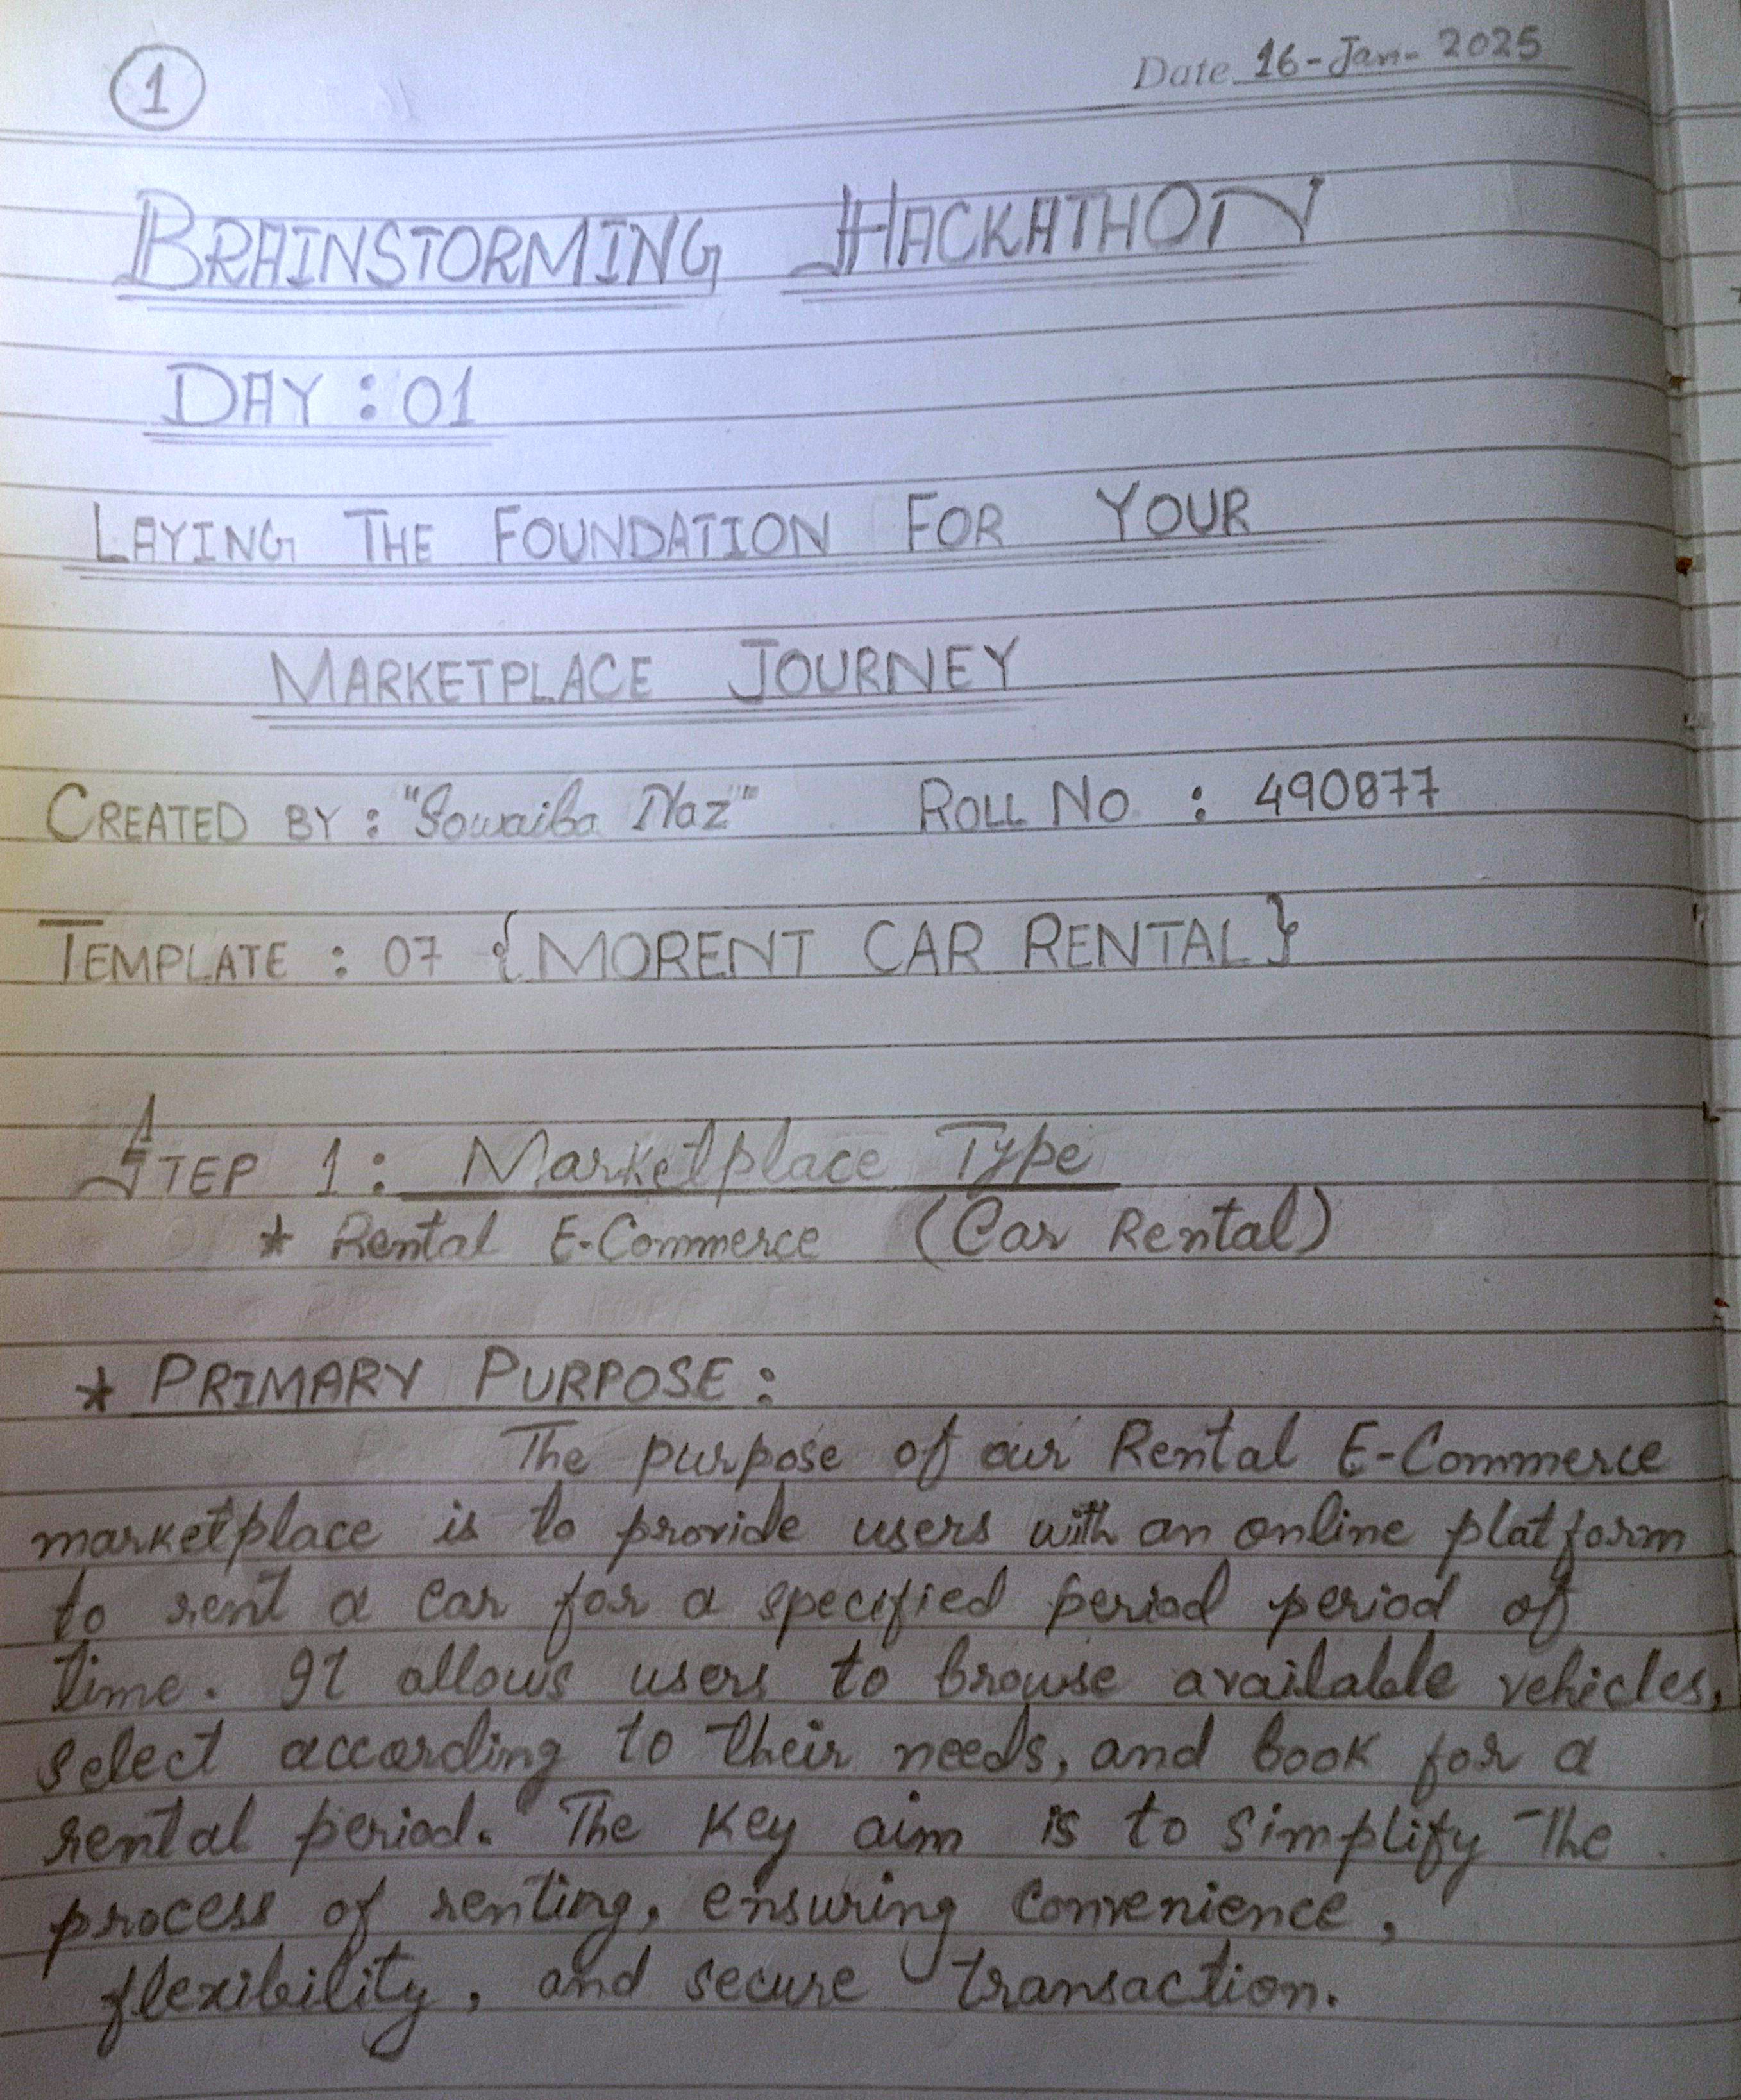 1
Date 16-Jan-2025
BRAINSTORMING HACKATHON
DAY : 01
LAYING THE FOUNDATION FOR YOUR
MARKETPLACE JOURNEY
CREATED BY : "Sowaiba Naz" ROLL NO : 490877
TEMPLATE : 07 {MORENT CAR RENTAL}
STEP 1 : Marketplace Type
* Rental E-Commerce (Car Rental)
* PRIMARY PURPOSE :
The purpose of our Rental E-Commerce
marketplace is to provide users with an online platform
to rent a car for a specified period period of
time. It allows users to browse available vehicles,
select according to their needs, and book for a
rental period. The key aim is to simplify the
process of renting, ensuring convenience,
flexibility, and secure transaction.